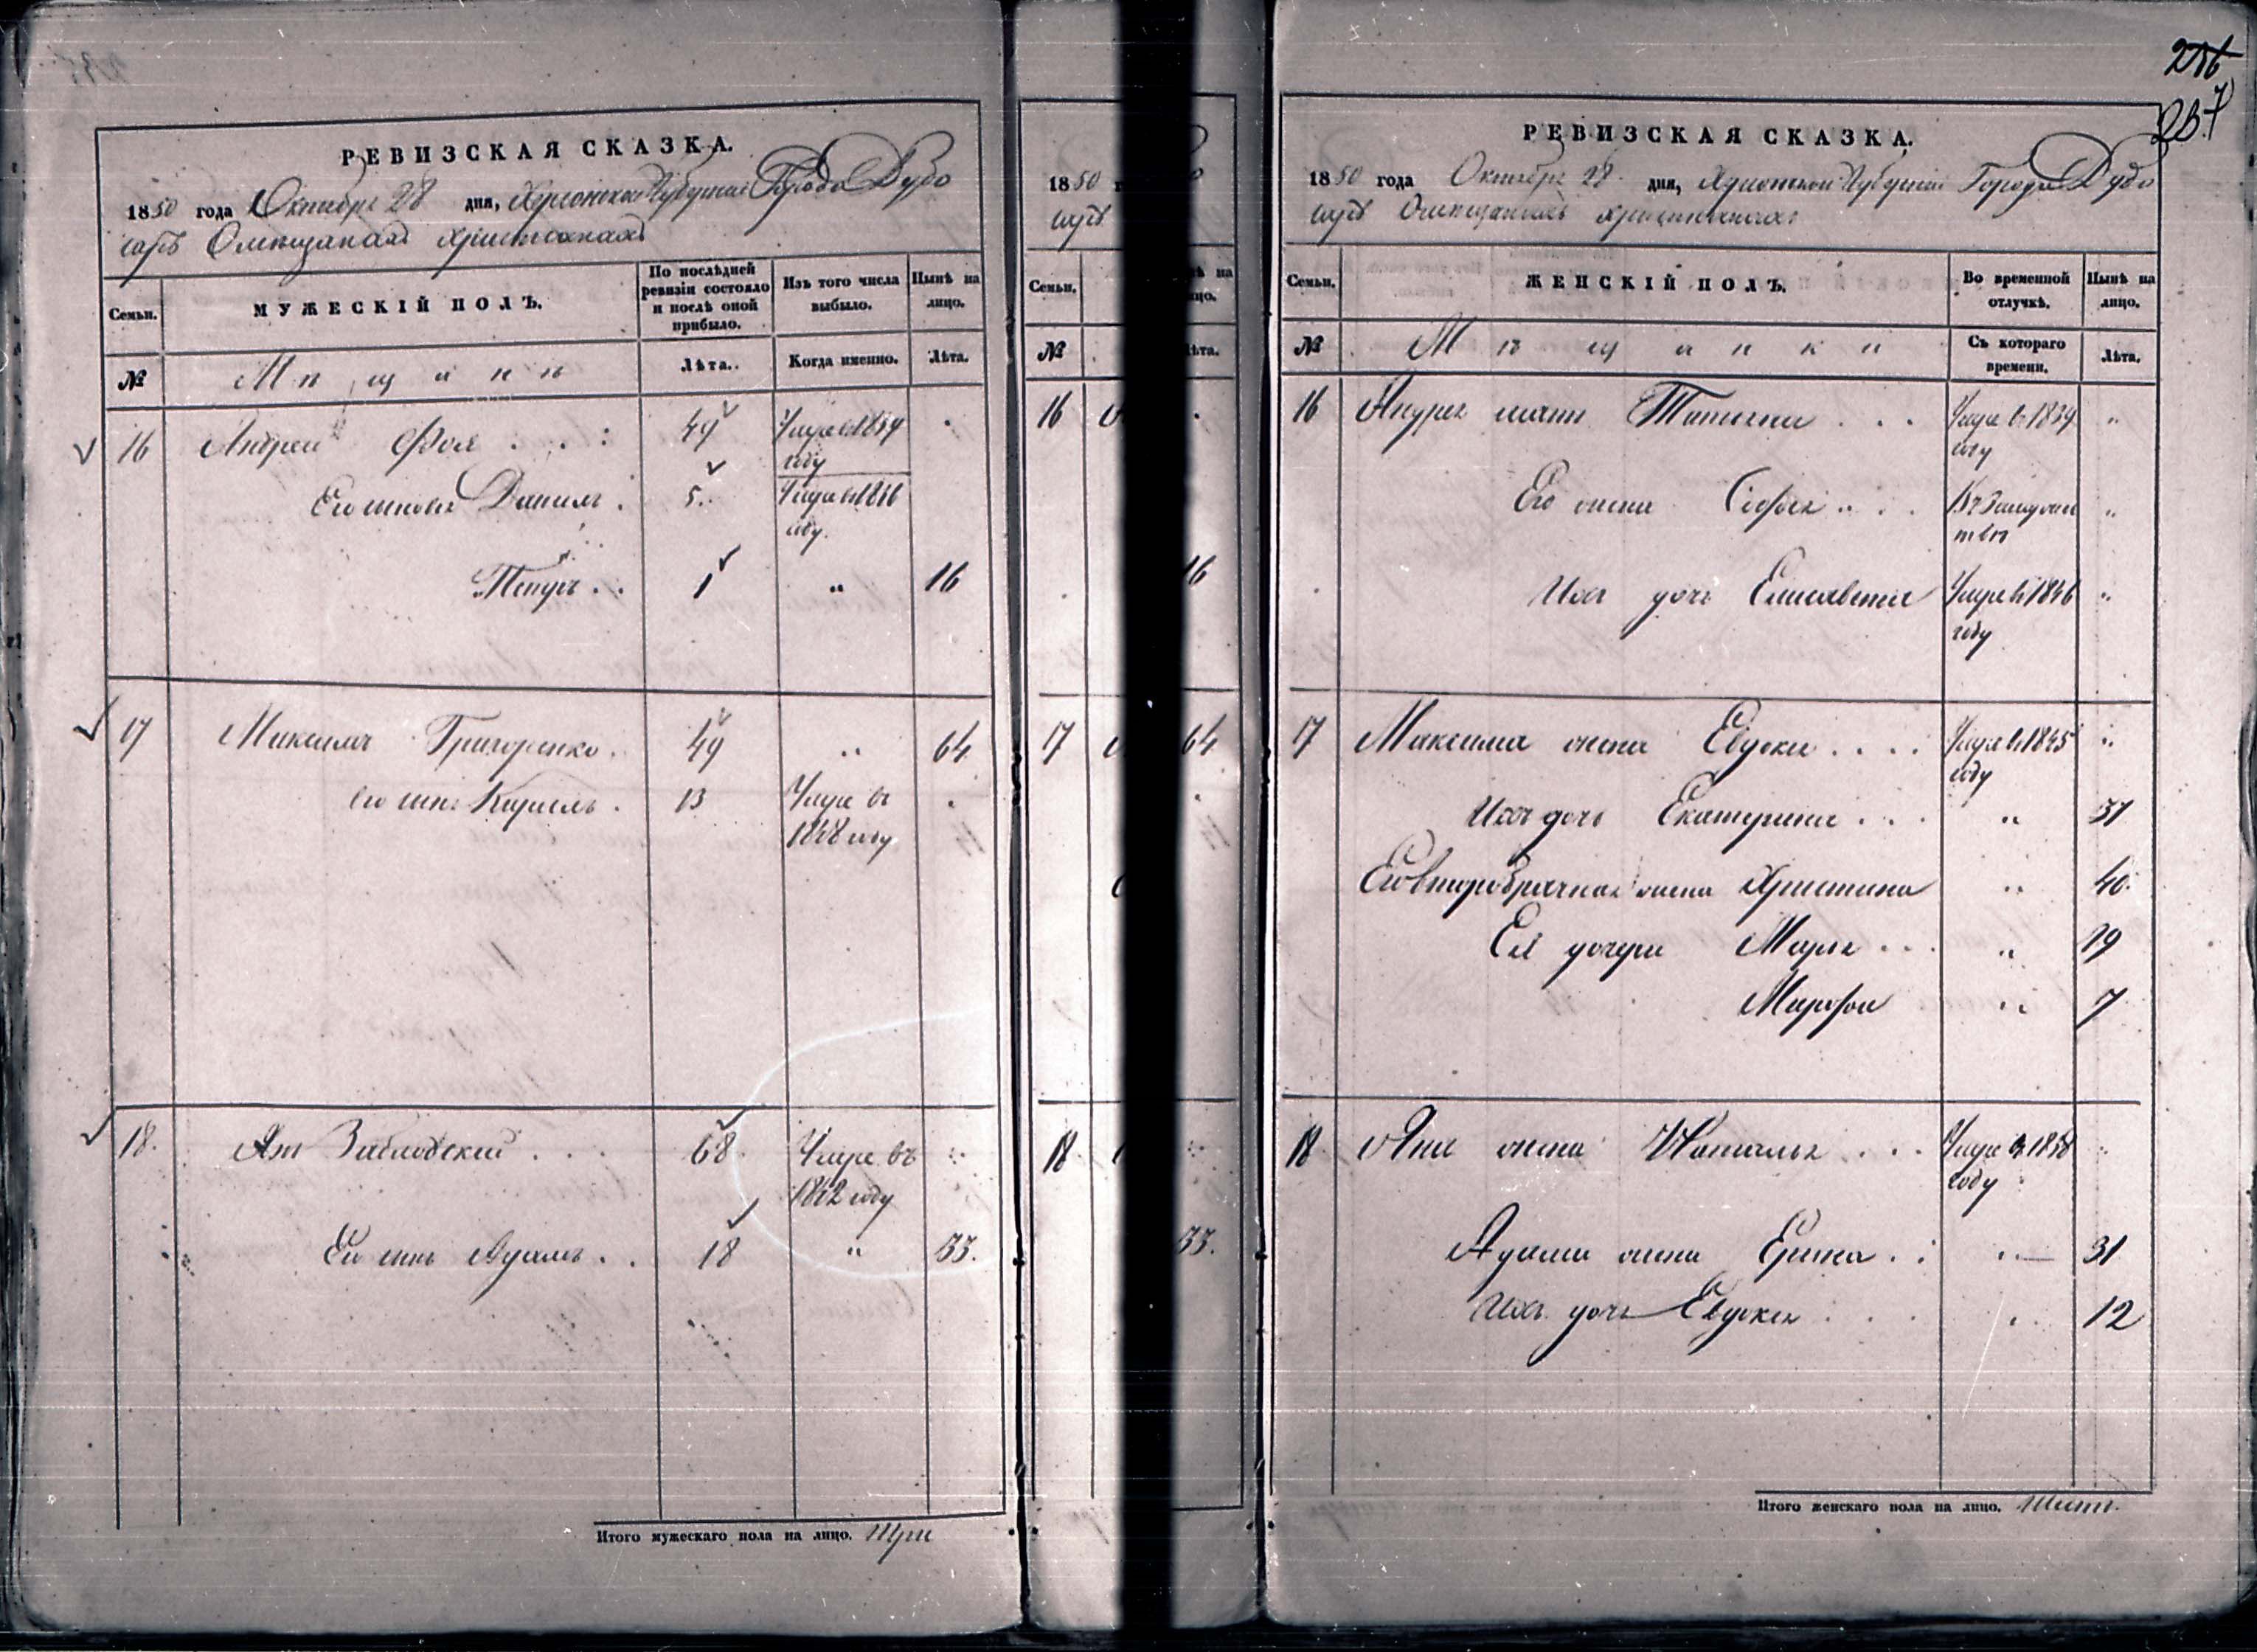 256
257
РЕВИЗСКАЯ СКАЗКА.
1850 года Октября 28 дня, Херсонской Губернии Города Дубо
саръ Омѣщанахъ христіанахъ
Семьи.
МУЖЕСКІЙ ПОЛЪ.
По послѣдней ревизіи состояло и послѣ оной прибыло.
Изъ того числа выбыло.
Нынѣ на лицо.
№
Мѣщанѣ
Лѣта.
Когда именно.
Лѣта.
16 Андрей Фоя 49 Умре в 1839 году
Его сыновья Данилъ 5 Умре в 1846 году.
Петръ 1 " 16
17 Максимъ Григоренко 49 " 64
Его сынъ Кирилъ 13 Умре въ 1848 году
18. Янъ Заблодскій 68 Умре въ 1842 году
Его сынъ Адамъ 18 " 33.
Итого мужескаго пола на лицо. три
1850 г
саръ
Семьи.
№
16
16
17
64
18
33.
РЕВИЗСКАЯ СКАЗКА.
1850 года Октября 28 дня, Херсонской Губерніи Города Дубо
саръ Омѣщанкахъ христіанкахъ
Семьи.
ЖЕНСКІЙ ПОЛЪ.
Во временной отлучкѣ.
Нынѣ на лицо.
№
Мѣщанки
Съ котораго времени.
Лѣта.
16 Андрея жена Татьяна Умре в 1839 году "
Его жена Софья Въ Замужествѣ "
Ихъ дочь Елисавета Умре в 1846 году "
17 Максима жена Евдокия Умре в 1845 году "
Ихъ дочь Екатерина " 31
Его второбрачная жена Христина " 40.
Ея дочери Марья " 19
Марфа " 7
18 Яна жена Наталья Умре в 1838 году "
Адама жена Ерина " 31
Ихъ дочь Евдокия " 12
Итого женскаго пола на лицо. шесть.